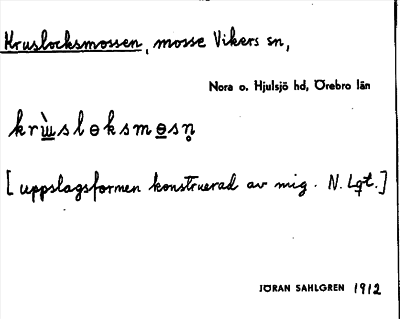 Kruslocksmossen, mosse Vikers sn,
Nora o. Hjulsjö hd, Örebro län
krɯ̀sloksmosn̥
[uppslagsformen konstruerad av mig. N. Lqt.]
JÖRAN SAHLGREN 1912